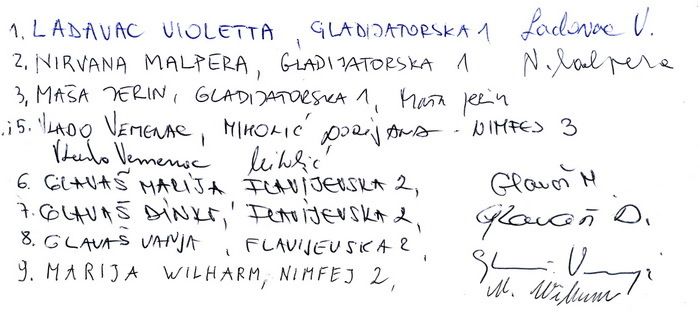 1. LADAVAC VIOLETTA, GLADIJATORSKA 1 Ladavac V.
2, NIRVANA MALPERA, GLADIJATORSKA 1 N. Malpera
3, MAŠA JERIN, GLADIJATORSKA 1, Maša Jerin
i5. VLADO VEMENAC, MIHOLIĆ DORIJANA - NIMFEJ 3
Vlado Vemenac Miholić
6. GLAVAŠ MARIJA FLAVIJEVSKA 2, Glavaš M
7. GLAVAŠ DINKO, FLAVIJEVSKA 2, Glavaš D.
8. GLAVAŠ VANJA, FLAVIJEVSKA 2
9. MARIJA WILHARM, NIMFEJ 2,